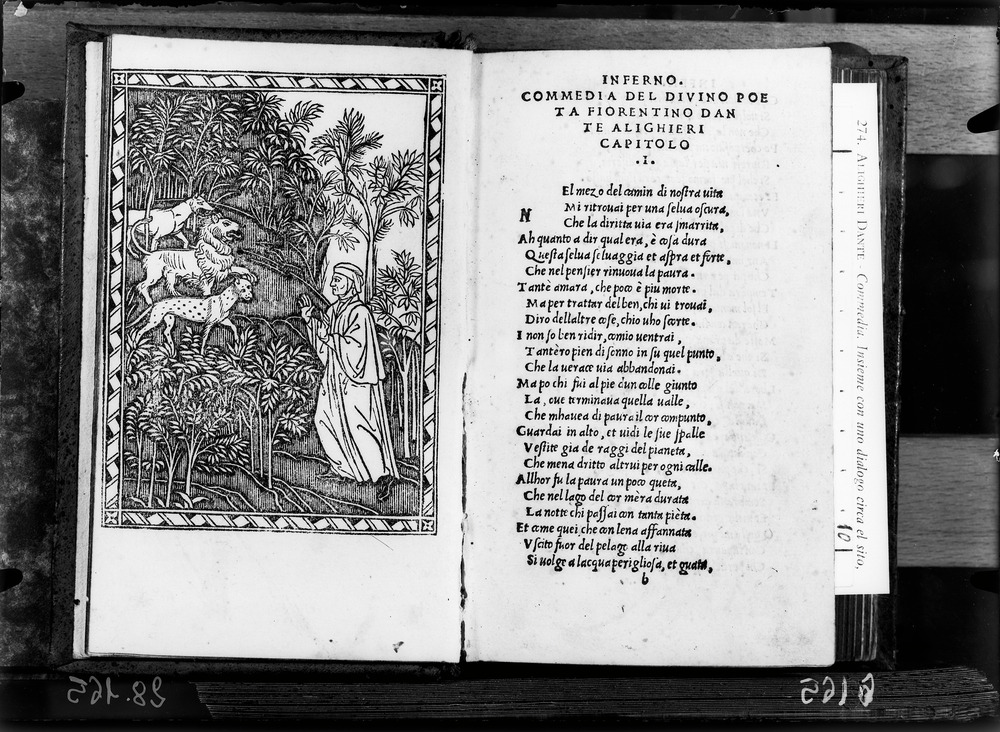 INFERNO.
COMMEDIA DEL DIVINO POE
TA FIORENTINO DAN
TE ALIGHIERI
CAPITOLO
.I.
N
El mezo del camin di nostra uita
Mi ritrouai per una selua oscura,
Che la diritta uia era smarrita,
Ah quanto a dir qual era, è cosa dura
Questa selua seluaggia et aspra et forte,
Che nel pensier rinuoua la paura.
Tant'è amara, che poco è piu morte.
Ma per trattar del ben, ch'i ui trouai,
Diro dell'altre cose, ch'io u'ho scorte.
I non so ben ridir, com'io u'entrai,
Tant'ero pien di sonno in su quel punto,
Che la uerace uia abbandonai.
Ma po ch'i fui al pie d'un colle giunto
La, oue terminaua quella ualle,
Che m'hauea di paura il cor compunto,
Guardai in alto, et uidi le sue spalle
Vestite gia de raggi del pianeta,
Che mena dritto altrui per ogni calle.
Allhor fu la paura un poco queta,
Che nel lago del cor m'era durata
La notte ch'i passai con tanta pièta.
Et come quei che con lena affannata
Vscito fuor del pelago alla riua
Si uolge a l'acqua perigliosa, et guata,
b
274. ALIGHIERI DANTE. Commedia. Insieme con uno dialogo circa el sito,
10
28.165
6165